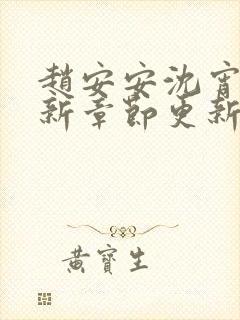 趙安安沈宵
新章節更新
黃寶生